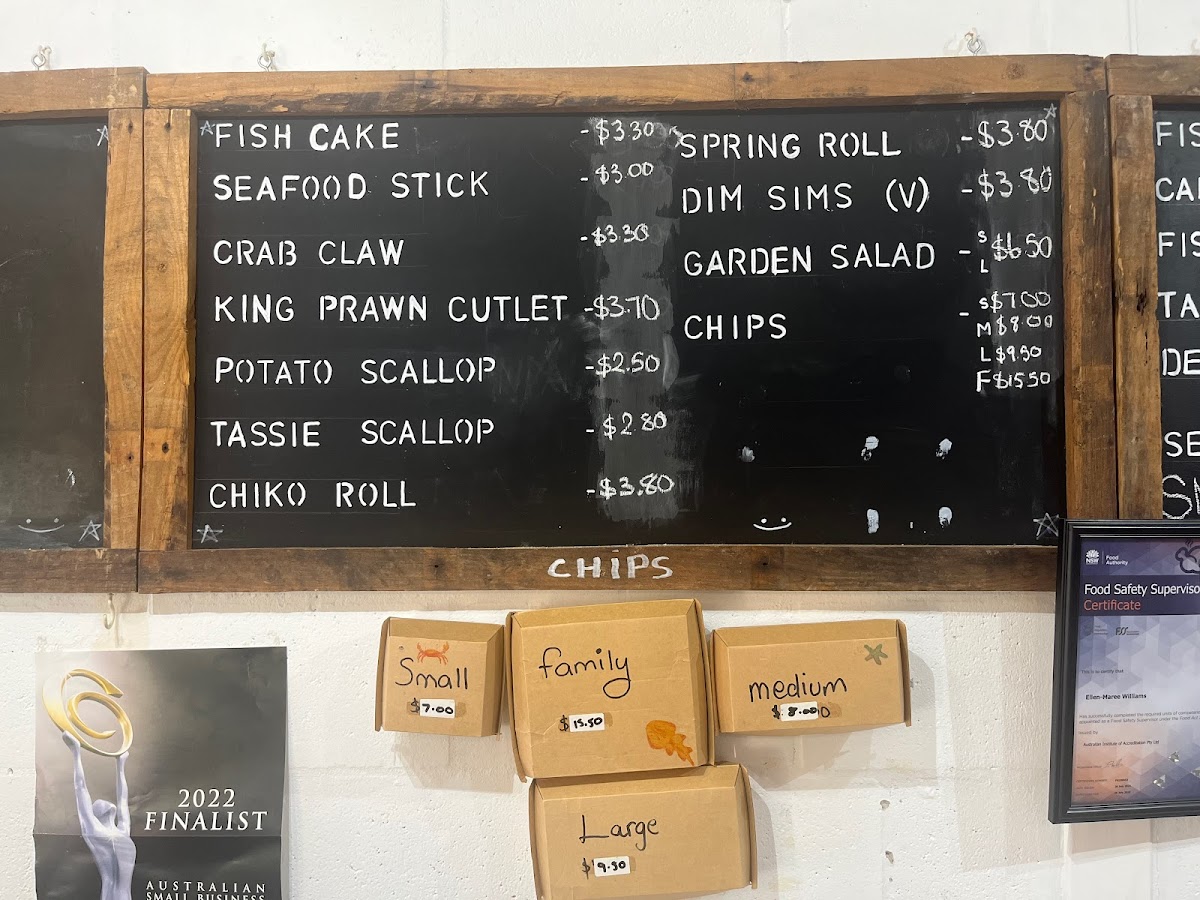 FISH CAKE -$3.30
SEAFOOD STICK -$3.00
CRAB CLAW -$3.30
KING PRAWN CUTLET -$3.70
POTATO SCALLOP -$2.50
TASSIE SCALLOP -$2.80
CHIKO ROLL -$3.80
SPRING ROLL -$3.80
DIM SIMS (V) -$3.80
GARDEN SALAD - S $6.50
L
CHIPS - S $7.00
M $8.00
L $9.50
F $15.50
FIS
CA
FIS
TA
DE
SE
CHIPS
Small
$7.00
family
$15.50
medium
$8.00
Large
$9.50
2022
FINALIST
AUSTRALIAN
SMALL BUSINESS
NSW
Food
Authority
Food Safety Superviso
Certificate
This is to certify that
Ellen-Maree Williams
Australian Institute of Accreditation Pty Ltd